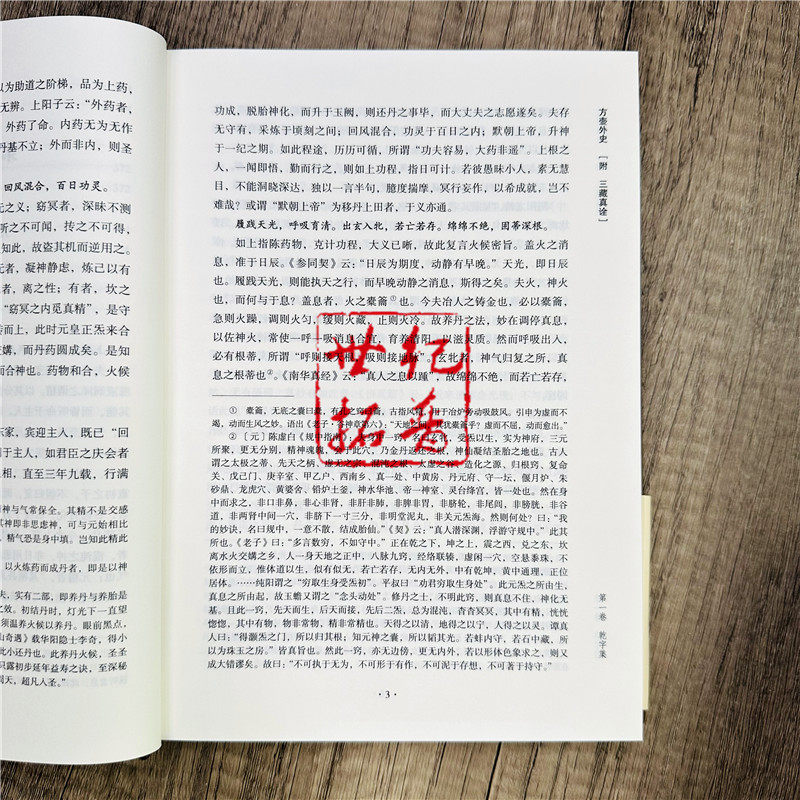 以为助道之阶梯，品为上药、
无辨。上阳子云：“外药者，
外药了命。内药无为无作
丹基不立；外而非内，则圣
回风混合，百日功灵。
无之义；窈冥者，深昧不测
听之不可闻，抟之不可得，
此，故盗其机而逆用之。
无者，凝神静虑，炼己以有
者，离之性；有者，坎之
“窈冥之内觅真精”，是守
转而上，此时元皇正炁来合
交媾，而丹药圆成矣。是知
而合神也。药物和合，火候
东家，宾迎主人，既已“回
别于主人，如君臣之庆会
，直至三年九载，行满
神与气常保全。其精不是交感
其神即非思虑神，可与元始相比
，精气恐是身中填。岂知此精此
，以火炼药而成丹者，即是以神
夫，实有二部，即养丹与养胎是
之效。初结丹时，灯光下一直望
须温养火候以养丹。眼前黑点，
山奇遇》载华阳隐士李奇，得小
此小还丹也。“此养丹火候，圣圣
只露初步延年益寿之诀，至深秘
周天，超凡人圣。”
功成，脱胎神化，而升于玉阙，则还丹之事毕，而大丈夫之志愿遂矣。夫存
无守有，采炼于顷刻之间；回风混合，功灵于百日之内；默朝上帝，升神
于一纪之期。如此程途，历历可循，所谓“功夫容易，大药非遥”。上根之
人，一闻即悟，勤而行之，则如上功程，指日可计。若彼愚昧小人，素无慧
目，不能洞晓深达，独以一言半句，臆度揣摩，冥行妄作，以希成就，岂不
难哉？或谓“默朝上帝”为移丹上田者，于义亦通。
履践天光，呼吸育清。出玄入牝，若亡若存。绵绵不绝，固蒂深根。
如上指陈药物，克计功程，大义已晰，故此复言火候密旨。盖火之消
息，准于日辰。《参同契》云：“日辰为期度，动静有早晚。”天光，即日辰
也。履践天光，则能执天之行，而早晚动静之消息，斯得之矣。夫火，神火
也，而何与于息？盖息者，火之橐籥①也。今夫冶人之铸金也，必以橐籥，
急则火躁，调则火匀，缓则火藏，止则火冷。故养丹之法，妙在调停真息，
以佐神火，常使一呼一吸消息合宜，育养清阳，以滋灵质。然而呼吸出入，
必有根蒂，所谓“呼则接天根，吸则接地脉”。玄牝者，神气归复之所，真
息之根蒂也②。《南华真经》云：“真人之息以踵”，故绵绵不绝，而若亡若存，
① 橐籥，无底之囊曰橐，有孔之窍曰籥，古指风箱，用于冶炉旁动吸鼓风。引申为虚而不
竭，动而生风之妙。语出《老子·谷神章第六》：“天地之间，其犹橐籥乎！虚而不屈，动而愈出。”
② [元]陈虚白《规中指南》：
所聚，更无分别，精神魂魄，会于此穴，乃金丹返还之根，神仙凝结圣胎之地也。古人
谓之太极之蒂，先天之柄，虚无之系，混沌之根，太虚之谷，造化之源、归根窍、复命
关、戊己门、庚辛室、甲乙户、西南乡、真一处、中黄房、丹元府、守一坛，偃月炉、朱
砂鼎、龙虎穴、黄婆舍、铅炉土釜，神水华池、帝一神室、灵台绛宫，皆一处也。然在身
中而求之，非口非鼻，非心非肾，非肝非肺，非脾非胃，非脐轮，非尾闾，非膀胱，非谷
道，非两肾中间一穴，非脐下一寸三分，非明堂泥丸，非关元炁海。然则何处？曰：“我
的妙诀，名曰规中，一意不散，结成胎仙。”《契》云：“真人潜深渊，浮游守规中。”此其
所也。《老子》曰：“多言数穷，不如守中。”正在乾之下，坤之上，震之西，兑之东，坎
离水火交媾之乡，人一身天地之正中，八脉九窍，经络联辏，虚闲一穴，空悬黍珠，不
依形而立，惟体道以生，似有似无，若亡若存，无内无外，中有乾坤，黄中通理，正位
居体。……纯阳谓之“穷取生身受炁初”。平叔曰“劝君穷取生身处”。此元炁之所由生，
真息之所由起，故玉蟾又谓之“念头动处”。修丹之士，不明此窍，则真息不住，神化无
基。且此一窍，先天而生，后天而接，先后二炁，总为混沌，杳杳冥冥，其中有精，恍恍
惚惚，其中有物，物非常物，精非常精也。天得之以清，地得之以宁，人得之以灵。谭真
人曰：“得灏炁之门，所以归其根；知元神之囊，所以韬其光。若蚌内守，若石中藏，所
以为珠玉之房。”皆真旨也。然此一窍，亦无边傍，更无内外，若以形体色象求之，则又
成大错谬矣。故曰：“不可执于无为，不可形于有作，不可泥于存想，不可著于持守。”
·3·
方壶外史 [附 三藏真诠]
第一卷 乾字集
世纪
拓普